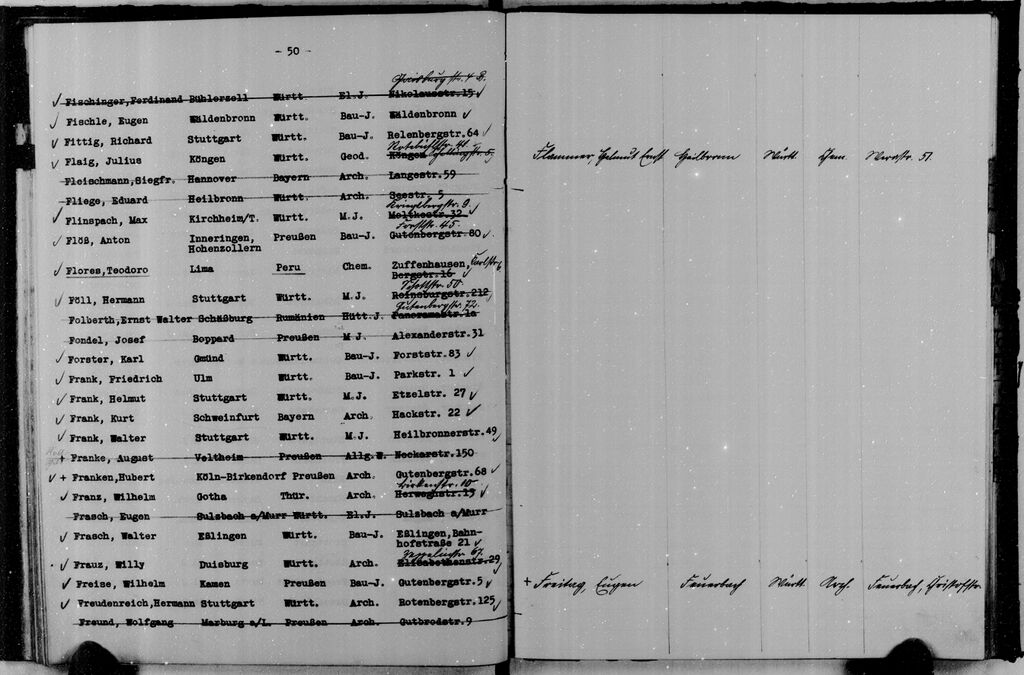 - 50 -
✓ Fischinger,Ferdinand Bühlerzell Württ. El.J. Nikolausstr.15 ✓
✓ Fischle, Eugen Wäldenbronn Württ. Bau-J. Wäldenbronn ✓
✓ Fittig, Richard Stuttgart Württ. Bau-J. Relenbergstr.64 ✓
Rotebühlstr. 41
✓ Flaig, Julius Köngen Württ. Geod. Köngen
Fleischmann,Siegfr. Hannover Bayern Arch. Langestr.59
Fliege, Eduard Heilbronn Württ. Arch. Seestr. 5
Kriegsbergstr. 9.
✓ Flinspach, Max Kirchheim/T. Württ. M.J. Moltkestr.32 ✓
Forststr. 45.
✓ Flöß, Anton Inneringen, Preußen Bau-J. Gutenbergstr.80 ✓
Hohenzollern
✓ Flores,Teodoro Lima Peru Chem. Zuffenhausen, Karlstr.
Bergstr.16 ✓
Schottstr. 50.
✓ Föll, Hermann Stuttgart Württ. M.J. Reinsburgstr.212
Gutenbergstr. 72.
Folberth,Ernst Walter Schäßburg Rumänien Hütt.J. Panoramastr.1a
Fondel, Josef Boppard Preußen M.J. Alexanderstr.31
✓ Forster, Karl Gmünd Württ. Bau-J. Forststr.83 ✓
✓ Frank, Friedrich Ulm Württ. Bau-J. Parkstr. 1 ✓
✓ Frank, Helmut Stuttgart Württ. M.J. Etzelstr. 27 ✓
✓ Frank, Kurt Schweinfurt Bayern Arch. Hackstr. 22 ✓
✓ Frank, Walter Stuttgart Württ. M.J. Heilbronnerstr.49 ✓
+ Franke, August Veltheim Preußen Allg.W. Neckarstr.150
✓ + Franken,Hubert Köln-Birkendorf Preußen Arch. Gutenbergstr.68 ✓
Birkenstr. 10
✓ Franz, Wilhelm Gotha Thür. Arch. Herweghstr.15 ✓
Frasch, Eugen Sulzbach a/Murr Württ. El.J. Sulzbach a/Murr
✓ Frasch, Walter Eßlingen Württ. Bau-J. Eßlingen,Bahn-
hofstraße 21 ✓
Zeppelinstr. 67.
✓ Frauz, Willy Duisburg Württ. Arch. Elisabethenstr.29 ✓
✓ Freise, Wilhelm Kamen Preußen Bau-J. Gutenbergstr.5 ✓
✓ Freudenreich,Hermann Stuttgart Württ. Arch. Rotenbergstr.125 ✓
Freund, Wolfgang Marburg a/L. Preußen Arch. Gutbrodstr.9
Flammer, Helmut Ernst Heilbronn Württ. Chem. Werastr. 51.
+ Freitag, Eugen Feuerbach Württ. Arch. Feuerbach, Christofstr.